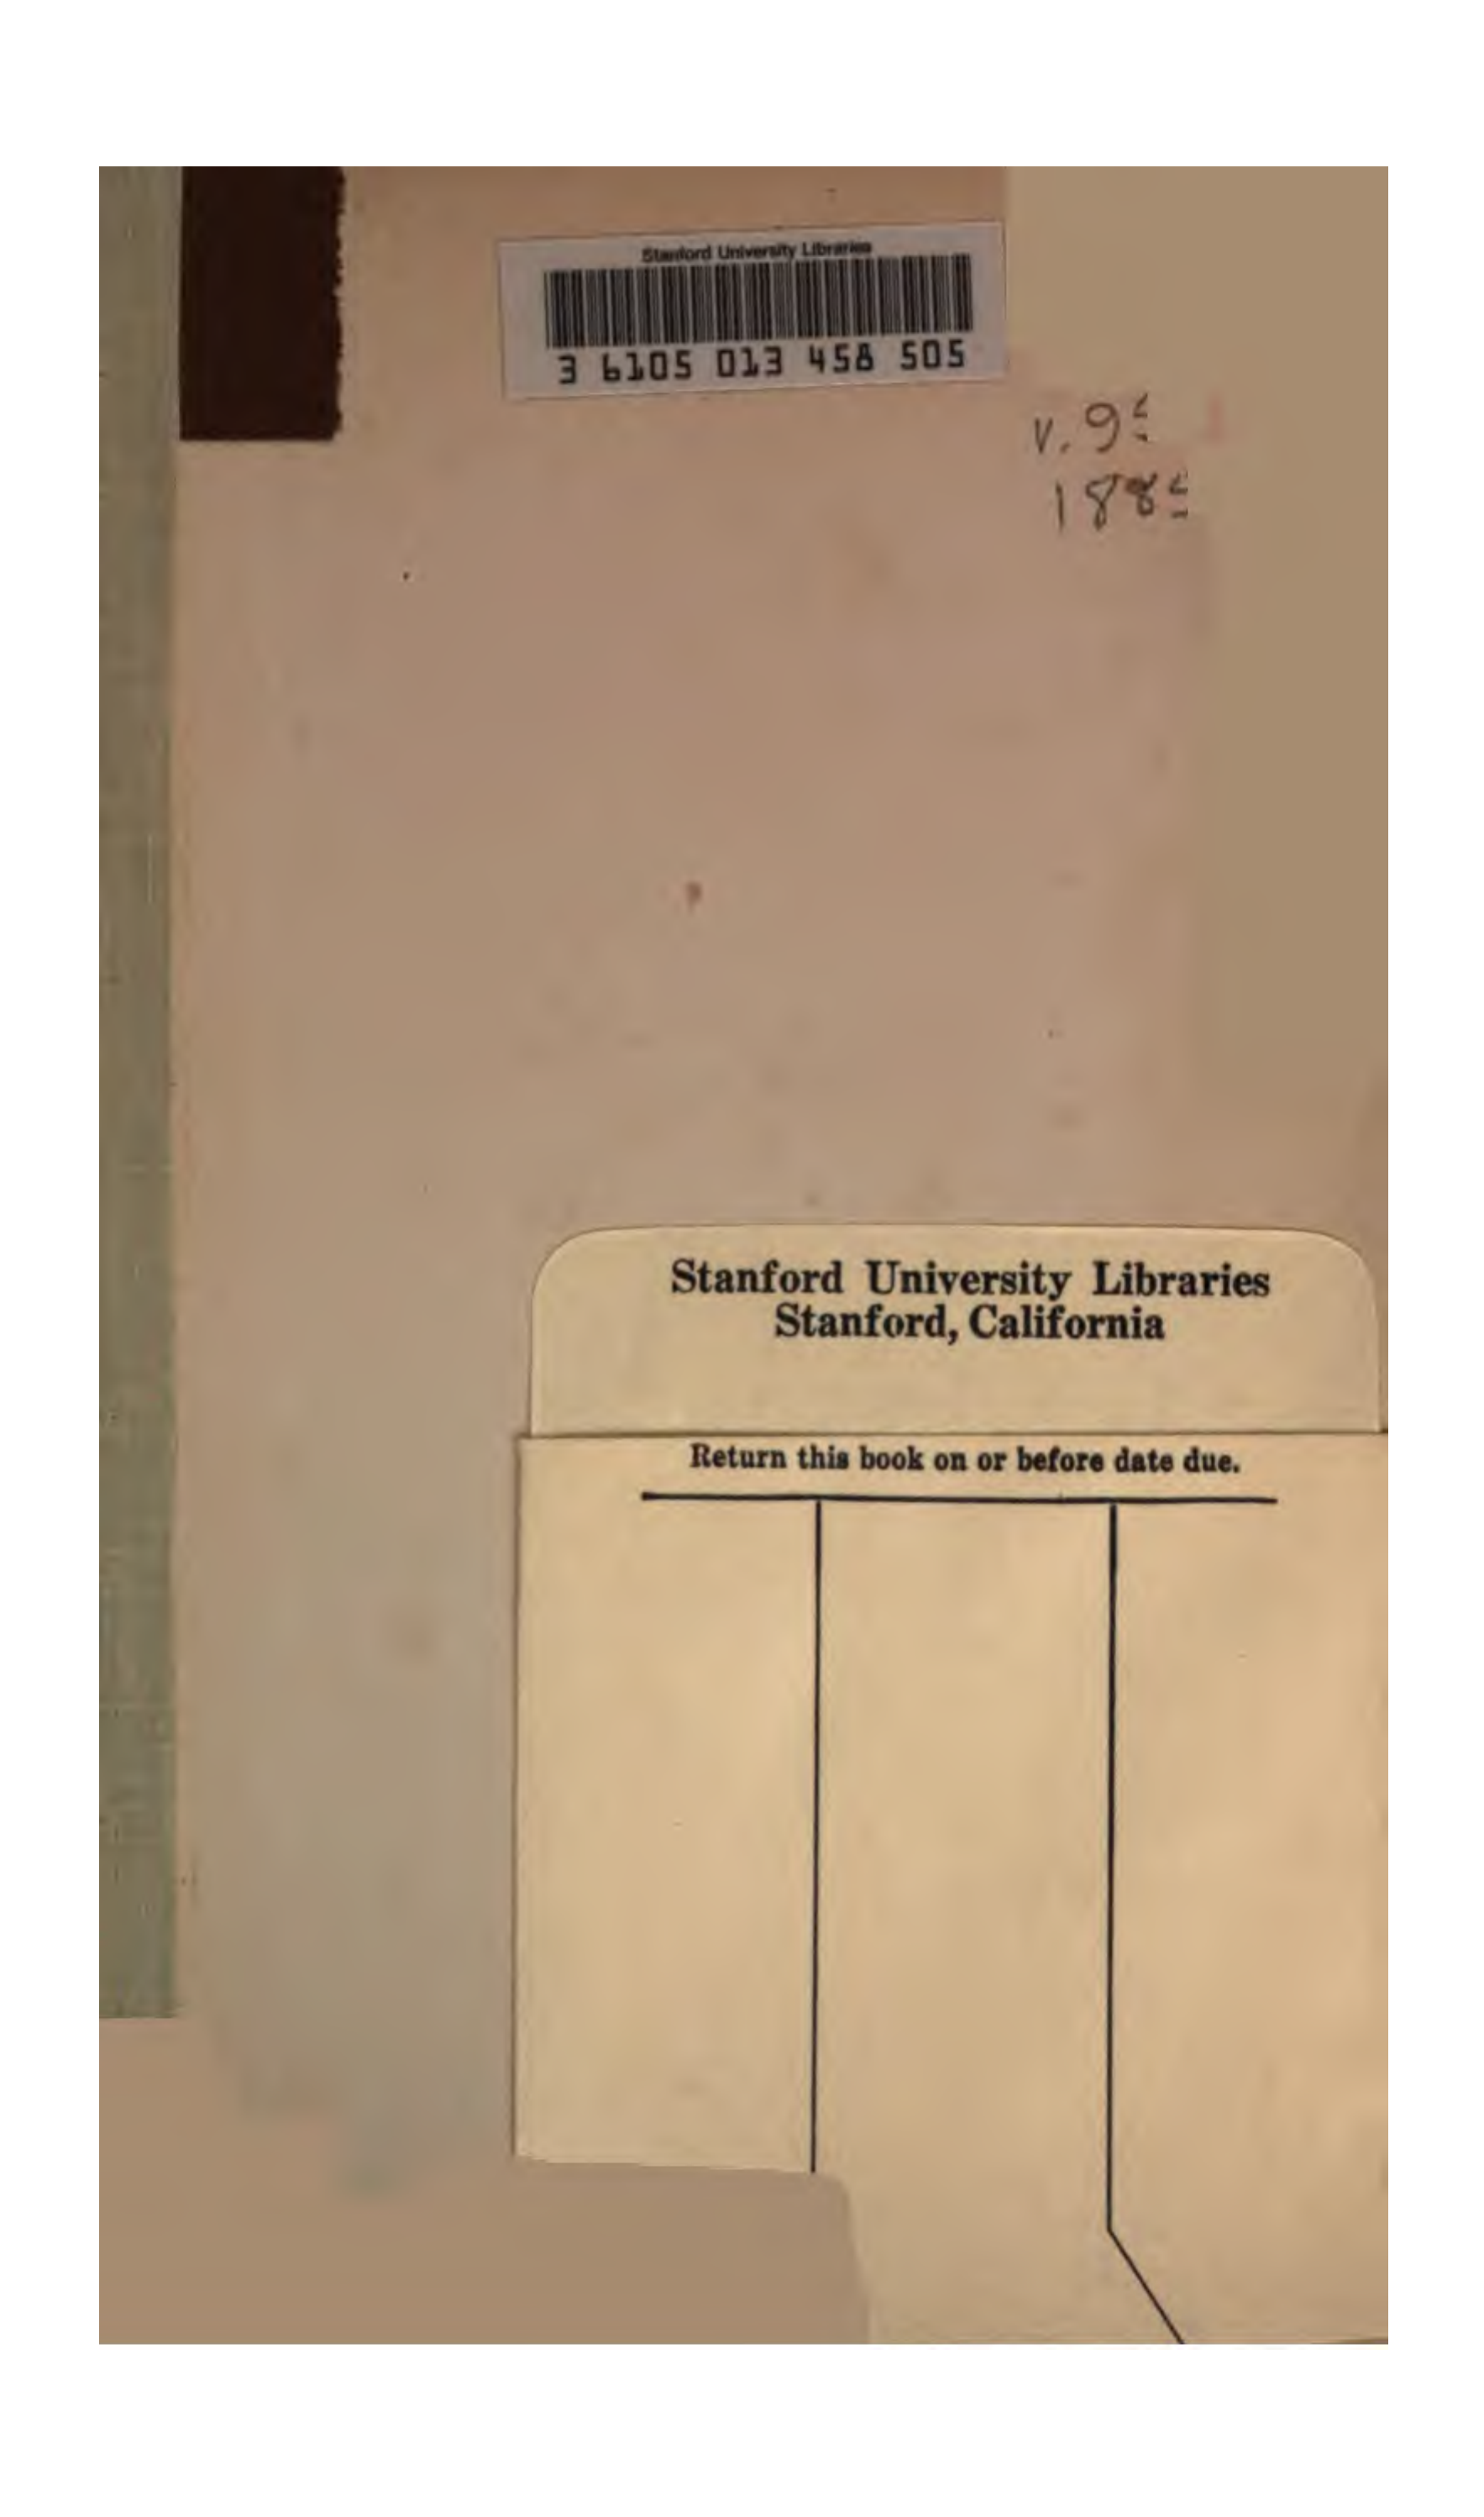 Stanford University Libraries
3 6105 013 458 505
v.
Stanford University Libraries
Stanford, California
Return this book on or before date due.